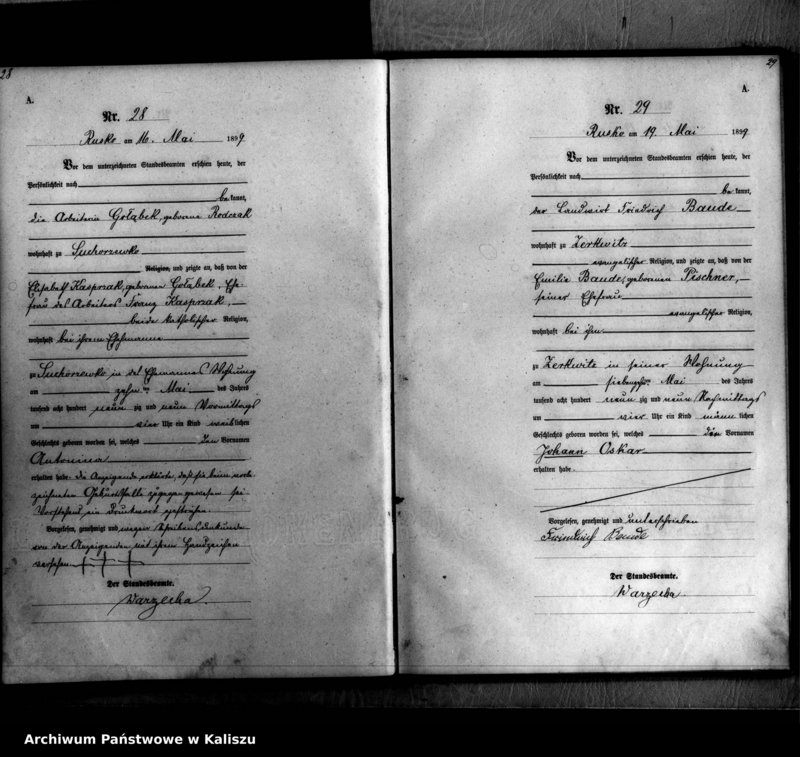 28
A.
Nr. 28
Rusko am 16. Mai 1899
Vor dem unterzeichneten Standesbeamten erschien heute, der
Persönlichkeit nach
bekannt,
die Arbeiterin Gołąbek, geborene
wohnhaft zu Suchorzewko
Religion, und zeigte an, daß von der
Elisabeth Kasprzak, geborenen Gołąbek, Ehe-
frau des Arbeiters Franz Kasprzak,
beide katholischer Religion,
wohnhaft bei ihrem Ehemanne
zu Suchorzewko in des Ehemannes Wohnung
am zehnten Mai des Jahres
tausend acht hundert neunzig und neun Vormittags
um vier Uhr ein Kind weiblichen
Geschlechts geboren worden sei, welches den Vornamen
Antonina
erhalten habe. die Anzeigende erklärte, daß sie beim vorbe-
zeichneten Geburtsfalle zugegen gewesen sei
Vorstehend ein Druckwort gestrichen.
Vorgelesen, genehmigt und wegen Schreibensunkunde
von der Anzeigenden mit ihrem Handzeichen
versehen +++
Der Standesbeamte.
Warzecha.
29
A.
Nr. 29
Rusko am 19. Mai 1899
Vor dem unterzeichneten Standesbeamten erschien heute, der
Persönlichkeit nach
bekannt,
der Landwirt Friedrich Baude
wohnhaft zu Zerkwitz
evangelischer Religion, und zeigte an, daß von der
Emilie Baude, geborenen Pischner,
seiner Ehefrau
evangelischer Religion,
wohnhaft bei ihm
zu Zerkwitz in seiner Wohnung
am siebenzehnten Mai des Jahres
tausend acht hundert neunzig und neun Nachmittags
um vier Uhr ein Kind männlichen
Geschlechts geboren worden sei, welches den Vornamen
Johann Oskar
erhalten habe.
Vorgelesen, genehmigt und unterschrieben
Friedrich Baude
Der Standesbeamte.
Warzecha.
Archiwum Państwowe w Kaliszu